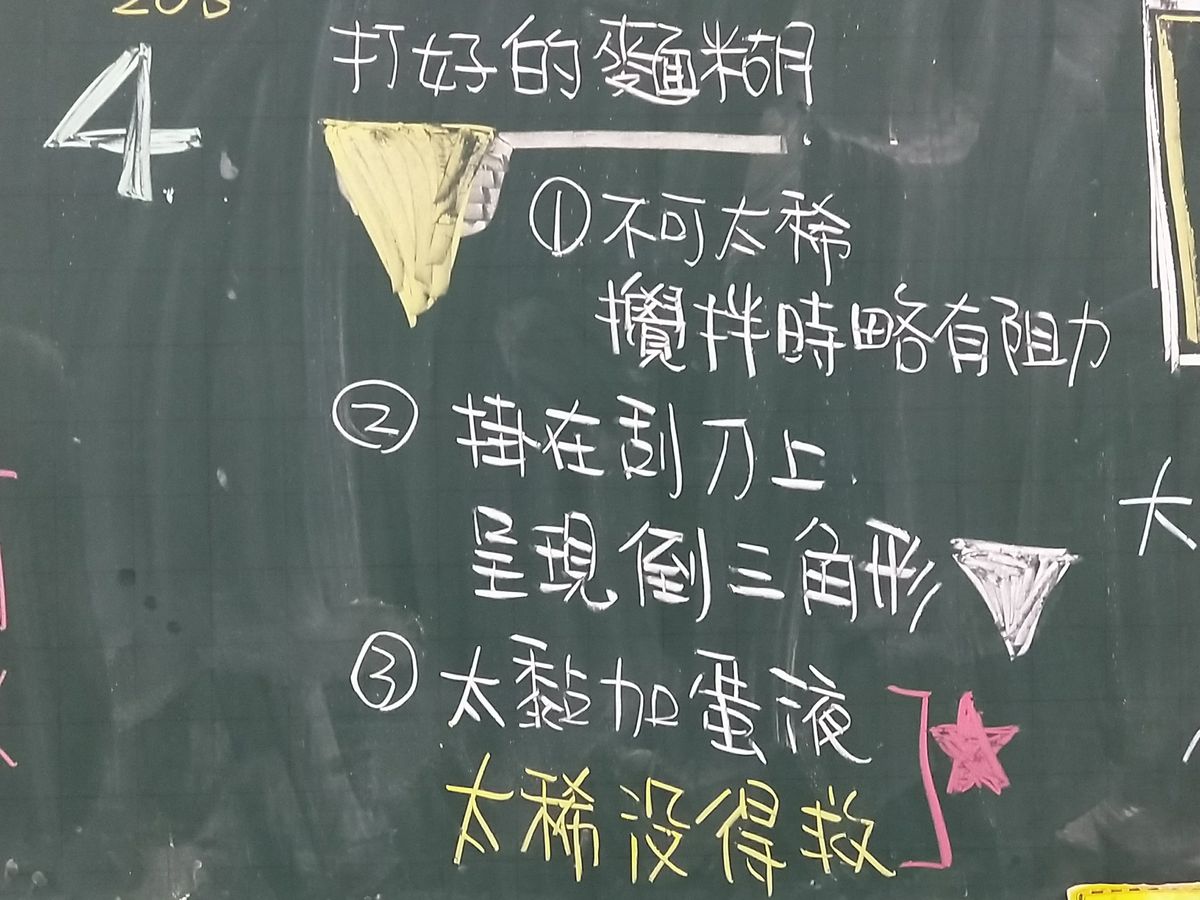 4.
打好的麵糊
①不可太稀
攪拌時略有阻力
② 掛在刮刀上
呈現倒三角形
③ 太黏加蛋液
太稀沒得救
大